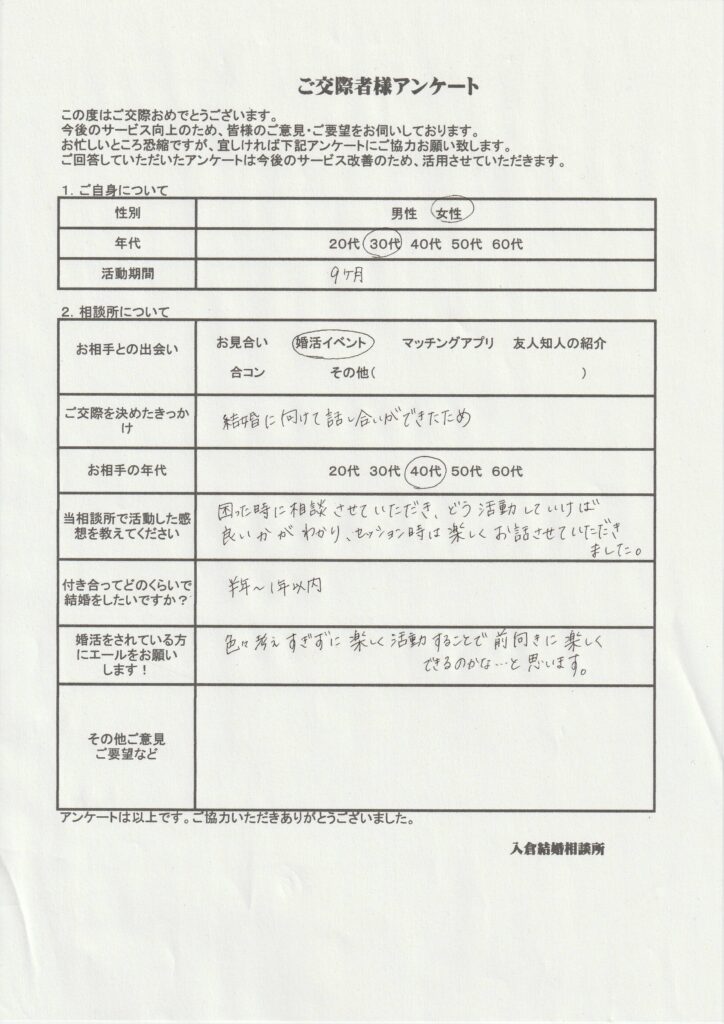 ご交際者様アンケート
この度はご交際おめでとうございます。
今後のサービス向上のため、皆様のご意見・ご要望をお伺いしております。
お忙しいところ恐縮ですが、宜しければ下記アンケートにご協力お願い致します。
ご回答していただいたアンケートは今後のサービス改善のため、活用させていただきます。
1. ご自身について
性別 男性 女性
年代 20代 30代 40代 50代 60代
活動期間 9ヶ月
2. 相談所について
お相手との出会い
お見合い 婚活イベント マッチングアプリ 友人知人の紹介
合コン その他( )
ご交際を決めたきっか
け
結婚に向けて話し合いができたため
お相手の年代 20代 30代 40代 50代 60代
当相談所で活動した感
想を教えてください
困った時に相談させていただき、どう活動していけば
良いかがわかり、セッション時は楽しくお話させていただき
ました。
付き合ってどのくらいで
結婚をしたいですか?
半年〜1年以内
婚活をされている方
にエールをお願い
します!
色々考えすぎずに楽しく活動することで前向きに楽しく
できるのかな…と思います。
その他ご意見
ご要望など
アンケートは以上です。ご協力いただきありがとうございました。
入倉結婚相談所